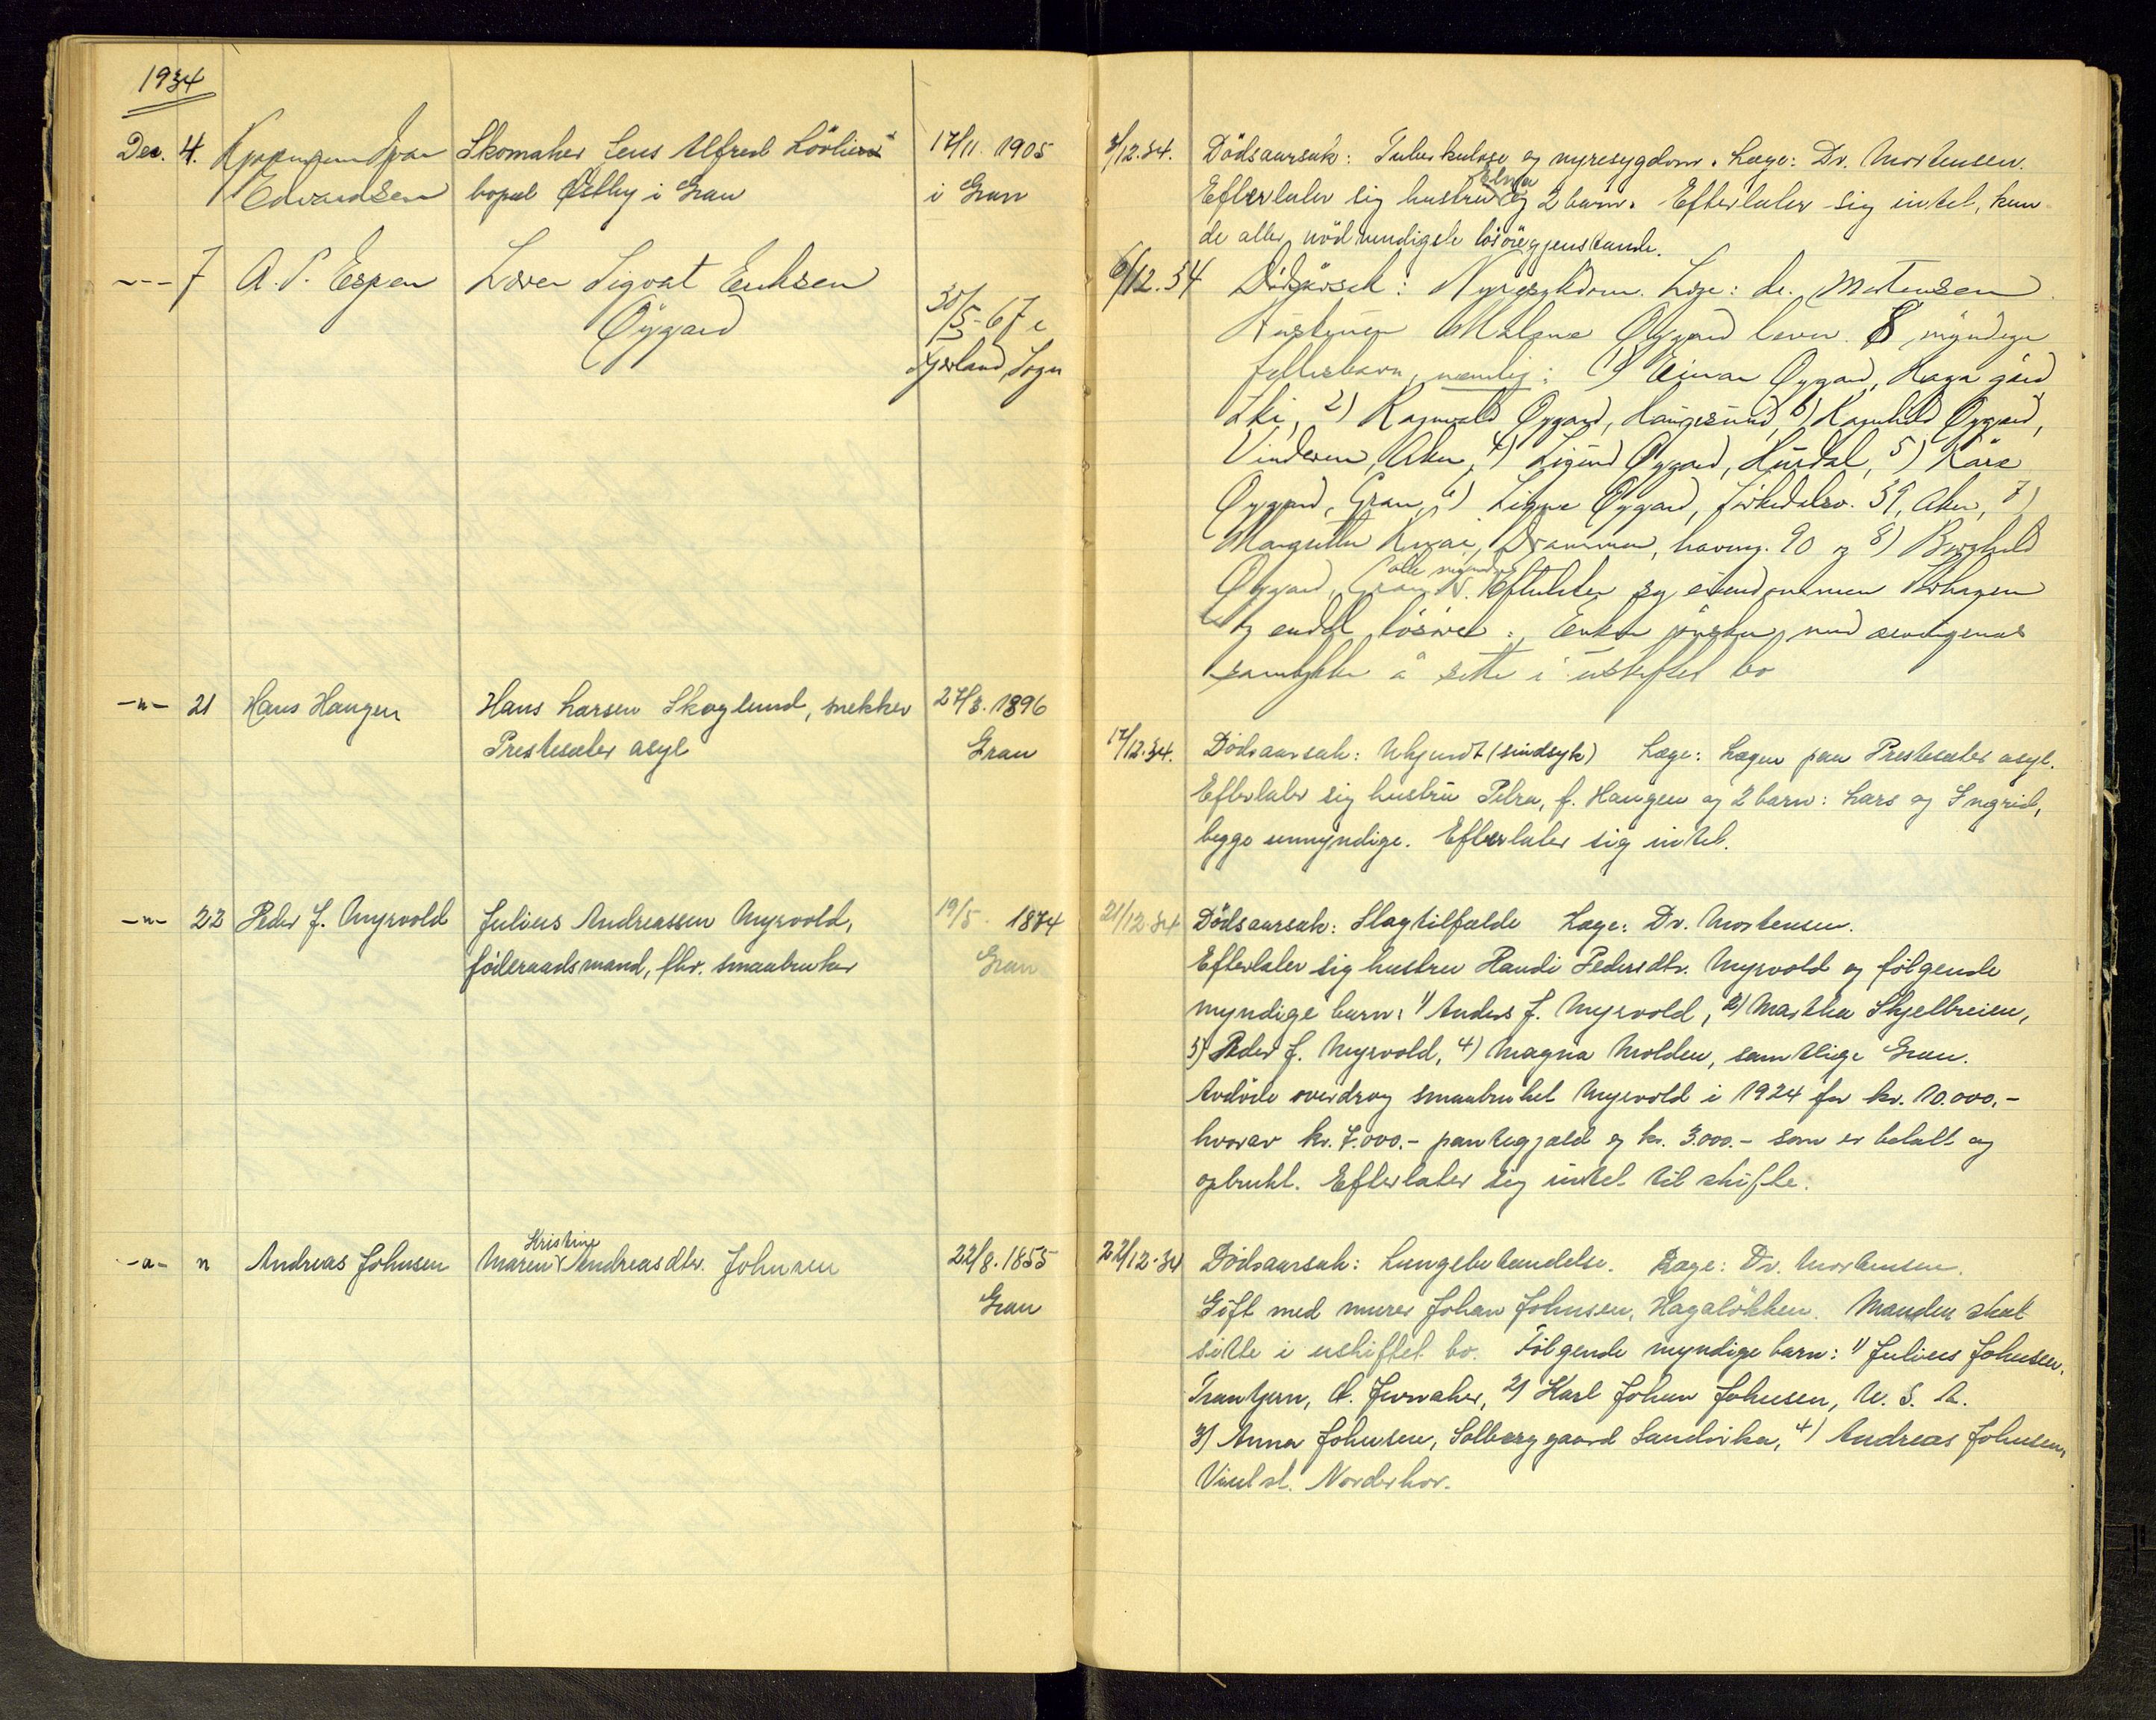 1934
Dec. 4. Ivar Edvardsen
Skomaker Jens Alfred Lövlien
bopæl Østby i Gran
17/11. 1905
i Gran
4/12.34. Dödsaarsak: Tuberkulose og nyresygdom. Læge: Dr. Mortensen.
Efterlater sig hustru Elma og 2 barn. Efterlater sig intet, kun
de aller nödvendigste lösöregjenstande.
--- 7 A. P. Espen
Sigvat Eriksen
Øygard
30/5-67 i
Fjærland, Sogn
6/12.34 Dödsårsak: Nyresykdom. Læge: dr. Mortensen.
Hustruen Malene Øygard lever. 8 myndige
fellesbarn, nemlig: 1) Einar Øygard, Haga gård
Ski, 2) Ragnvald Øygard, Haugesund, 3) Ragnhild Øygard,
Vinderen, Aker, 4) Sigurd Øygard, Hurdal, 5) Kåre
Øygard, Gran, 6) Signe Øygard, 39, Aker, 7)
Margrethe Drammen, havneg. 90 og 8) Borghild
Øygard, Gran, alle myndige. Efterlater sig eiendommen
og endel lösöre. Enken ønsker med arvingenes
samtykke å sitte i uskiftet bo
-"- 21 Hans Haugen
Hans Larsen Skoglund, snekker
Prestesæter asyl
27/3. 1896
Gran
17/12.34. Dödsaarsak: Ukjendt (sindsyk) Læge: Lægen paa Prestesæter asyl.
Efterlater sig hustru Petra, f. Haugen og 2 barn: Lars og Ingrid,
begge umyndige. Efterlater sig intet.
-"- 22 Peder J. Myrvold
Julius Andreassen Myrvold,
föderaadsmand, fhv. smaabruker
19/5. 1874
Gran
21/12.34 Dödsaarsak: Slagtilfælde Læge: Dr. Mortensen.
Efterlater sig hustru Randi Pedersdtr. Myrvold og fölgende
myndige barn: 1) Anders J. Myrvold, 2) Marthea Skjelbreien,
3) Peder J. Myrvold, 4) Magna Molden, samtlige Gran.
Avdöde overdrog smaabruket Myrvold i 1924 for kr. 10.000.-
hvorav kr. 7.000.- pantegjæld og kr. 3.000.- som er betalt og
opbrukt. Efterlater sig intet til skifte.
-"- " Andreas Johnsen
Maren Kristine Andreasdtr. Johnsen
22/8. 1855
Gran
22/12.34 Dödsaarsak: Lungebetændelse. Læge: Dr. Mortensen.
Gift med murer Johan Johnsen, Hagalökken. Manden skal
sitte i uskiftet bo. Fölgende myndige barn: 1) Julius Johnsen,
Trantjern, st. Jevnaker, 2) Karl Johan Johnsen, U. S. A.
3) Anna Johnsen, Solberg gaard Sandvika, 4) Andreas Johnsen,
Viul st. Norderhov.